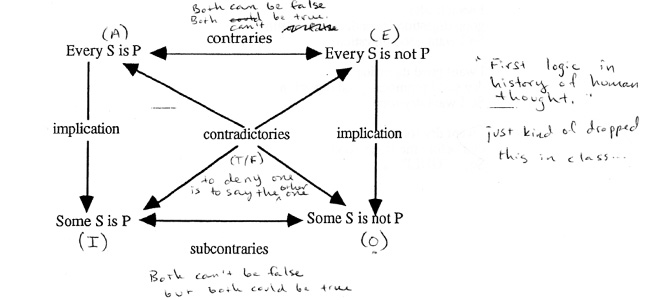 Both can be false
Both could be true.
can't
contraries
(A)
(E)
Every S is P
Every S is not P
implication
contradictories
implication
(T/F)
to deny one
is to say the other one
Some S is P
Some S is not P
(I)
(O)
subcontraries
Both can't be false
but both could be true
"First logic in
history of human
thought."
just kind of dropped
this in class...